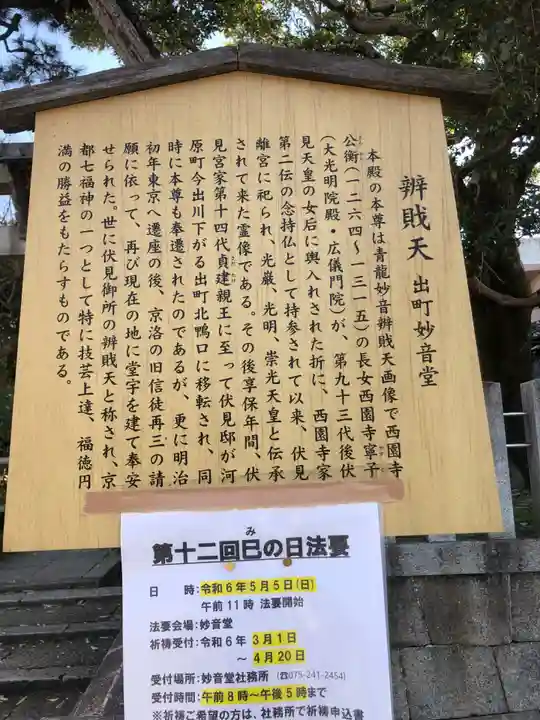 辨財天 出町妙音堂
本殿の本尊は青龍妙音辨財天画像で西園寺
公衡(一二六四~一三一五)の長女西園寺寧子
(大光明院殿・広儀門院)が、第九十三代後伏
見天皇の女后に輿入れされた折に、西園寺家
第二伝の念持仏として持参されて以来、伏見
離宮に祀られ、光厳、光明、崇光天皇と伝承
されて来た霊像である。その後享保年間、伏
見宮家第十四代貞建親王に至って伏見邸が河
原町今出川下がる出町北鴨口に移転され、同
時に本尊も奉遷されたのであるが、更に明治
初年東京へ遷座の後、京洛の旧信徒再三の請
願に依って、再び現在の地に堂宇を建て奉安
せられた。世に伏見御所の辨財天と称され、京
都七福神の一つとして特に技芸上達、福徳円
満の勝益をもたらすものである。
第十二回巳の日法要
日 時:令和6年5月5日(日)
午前11時 法要開始
法要会場:妙音堂
祈祷受付:令和6年 3月1日
~ 4月20日
受付場所:妙音堂社務所 (☎075-241-2454)
受付時間:午前8時~午後5時まで
※祈祷ご希望の方は、社務所で祈祷申込書